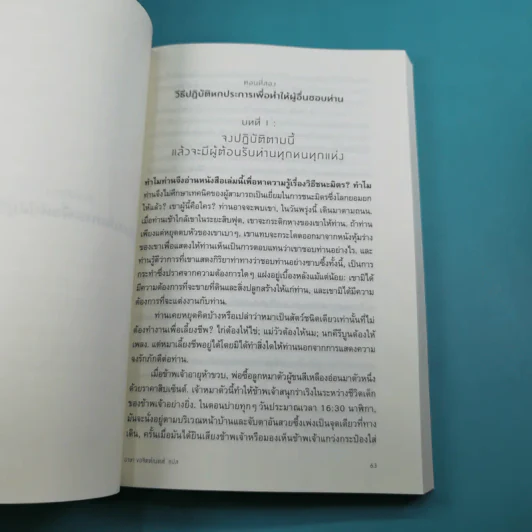 ตอนที่สอง
วิธีปฏิบัติหกประการเพื่อทำให้ผู้อื่นชอบท่าน
บทที่ 1 :
จงปฏิบัติตามนี้
แล้วจะมีผู้ต้อนรับท่านทุกหนทุกแห่ง
ทำไมท่านจึงอ่านหนังสือเล่มนี้เพื่อหาความรู้เรื่องวิธีชนะมิตร? ทำไม
ท่านจึงไม่ศึกษาเทคนิคของผู้สามารถเป็นเยี่ยมในการชนะมิตรซึ่งโลกยอมยก
ให้แล้ว? เขาผู้นี้คือใคร? ท่านอาจจะพบเขา, ในวันพรุ่งนี้ เดินมาตามถนน.
เมื่อท่านเข้าใกล้เขาในระยะสิบฟุต, เขาจะกระดิกหางของเขาให้ท่าน. ถ้าท่าน
เพียงแต่หยุดตบหัวของเขาเบาๆ, เขาแทบจะกระโดดออกมาจากหนังหุ้มร่าง
ของเขาเพื่อแสดงให้ท่านเห็นเป็นการตอบแทนว่าเขาชอบท่านอย่างไร. และ
ท่านรู้ดีว่าการที่เขาแสดงกิริยาท่าทางว่าชอบท่านอย่างซาบซึ้งทั้งนี้, เป็นการ
กระทำซึ่งปราศจากความต้องการใดๆ แฝงอยู่เบื้องหลังแม้แต่น้อย: เขามิได้
มีความต้องการที่จะขายที่ดินและสิ่งปลูกสร้างให้แก่ท่าน, และเขามิได้มีความ
ต้องการที่จะแต่งงานกับท่าน.
ท่านเคยหยุดคิดบ้างหรือเปล่าว่าหมาเป็นสัตว์ชนิดเดียวเท่านั้นที่ไม่
ต้องทำงานเพื่อเลี้ยงชีพ? ไก่ต้องให้ไข่; แม่วัวต้องให้นม; นกคีรีบูนต้องให้
เพลง. แต่หมาเลี้ยงชีพอยู่ได้โดยมิได้ทำสิ่งใดให้ท่านนอกจากการแสดงความ
จงรักภักดีต่อท่าน.
เมื่อข้าพเจ้าอายุห้าขวบ, พ่อซื้อลูกหมาตัวผู้ขนสีเหลืองอ่อนมาตัวหนึ่ง
ด้วยราคาสิบเซ็นต์. เจ้าหมาตัวนี้ทำให้ข้าพเจ้าสนุกร่าเริงในระหว่างชีวิตเด็ก
ของข้าพเจ้าอย่างยิ่ง. ในตอนบ่ายทุกๆ วันประมาณเวลา 16:30 นาฬิกา,
มันจะนั่งอยู่ตามบริเวณหน้าบ้านและจับตาอันสวยซึ้งเพ่งเป็นจุดเดียวที่ทาง
เดิน, ครั้นเมื่อมันได้ยินเสียงข้าพเจ้าหรือมองเห็นข้าพเจ้าแกว่งกระป๋องใส่
63